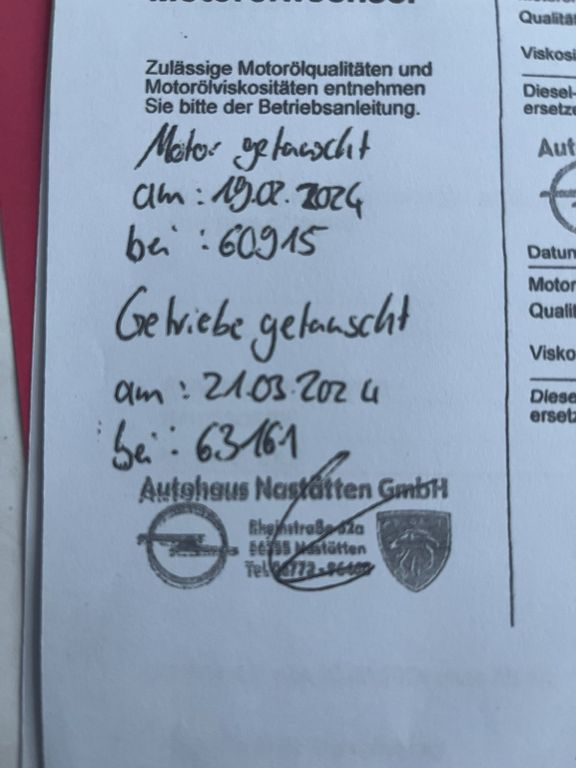 Zulässige Motorölqualitäten und
Motorölviskositäten entnehmen
Sie bitte der Betriebsanleitung.
Motor getauscht
am : 19.02.2024
bei : 60915
Getriebe getauscht
am : 21.03.2024
bei : 63161
Autohaus Nastätten GmbH
Rheinstraße
Nastätten
Tel.
Qualität
Viskosi
Diesel-
ersetze
Aut
Datum
Motor
Qualit
Visko
Diese
ersetz